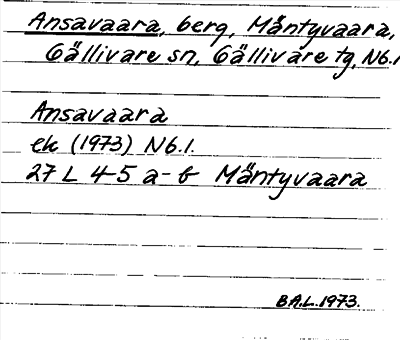 Ansavaara, berg, Mäntyvaara,
Gällivare sn, Gällivare tg, Nb.l
Ansavaara
ek (1973) Nb.l.
27 L 4-5 a-b Mäntyvaara
B.A.L. 1973.